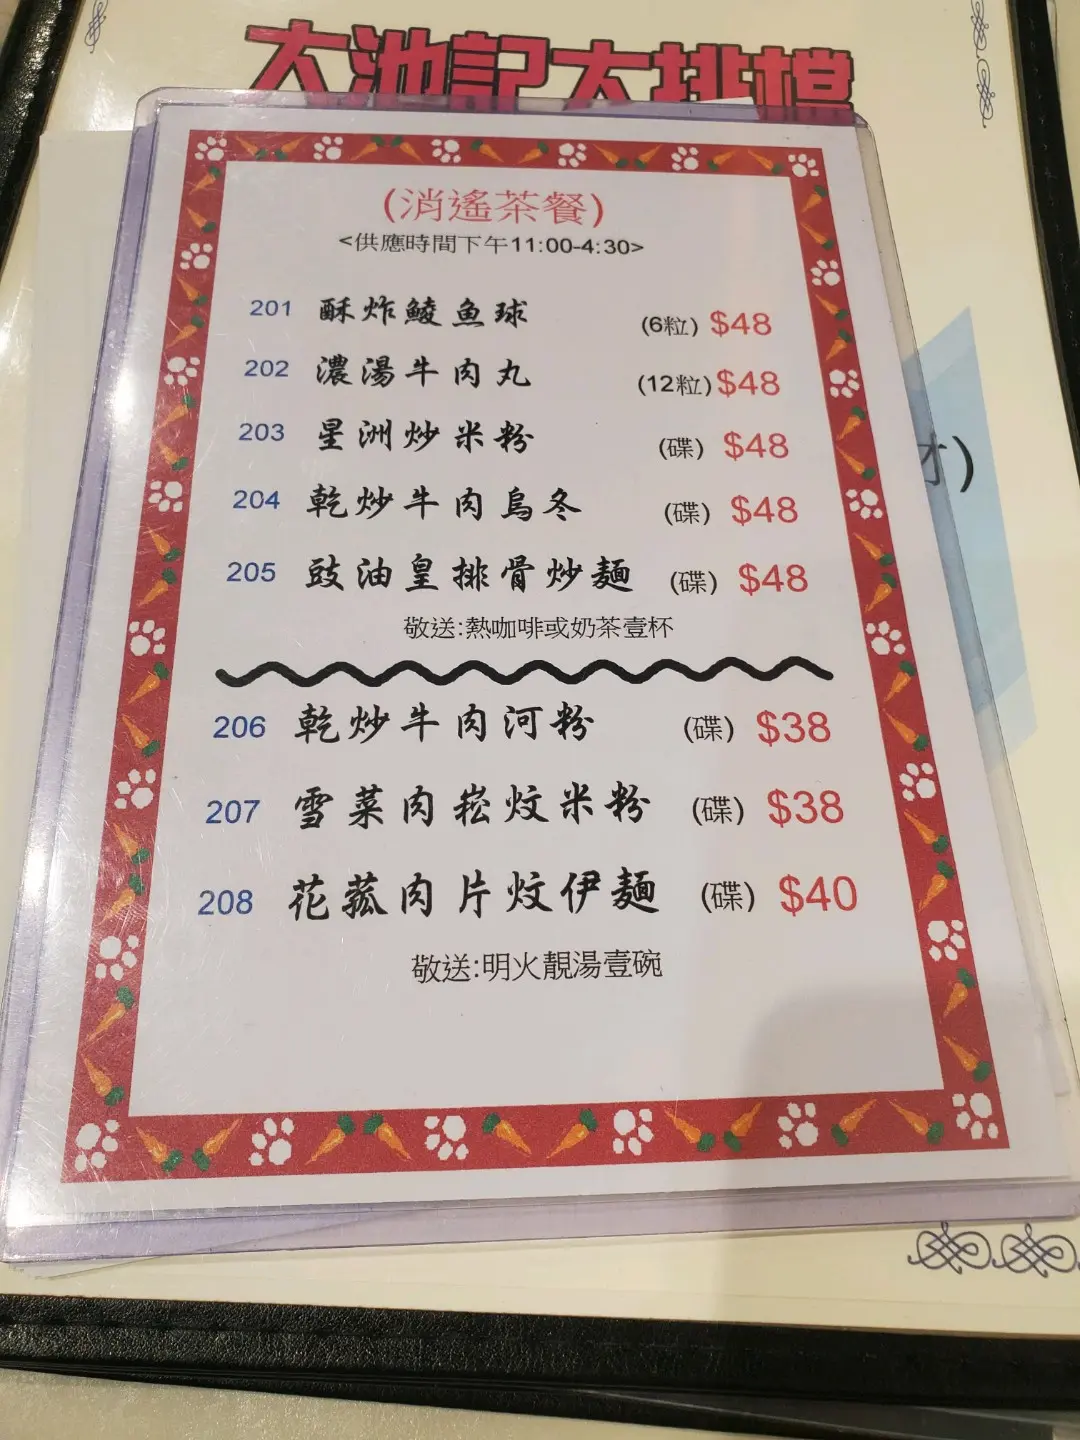 大池記大排檔
(消遙茶餐)
<供應時間下午11:00-4:30>
201 酥炸鯪魚球 (6粒) $48
202 濃湯牛肉丸 (12粒) $48
203 星洲炒米粉 (碟) $48
204 乾炒牛肉烏冬 (碟) $48
205 豉油皇排骨炒麵 (碟) $48
敬送:熱咖啡或奶茶壹杯
206 乾炒牛肉河粉 (碟) $38
207 雪菜肉崧炆米粉 (碟) $38
208 花菰肉片炆伊麵 (碟) $40
敬送:明火靚湯壹碗